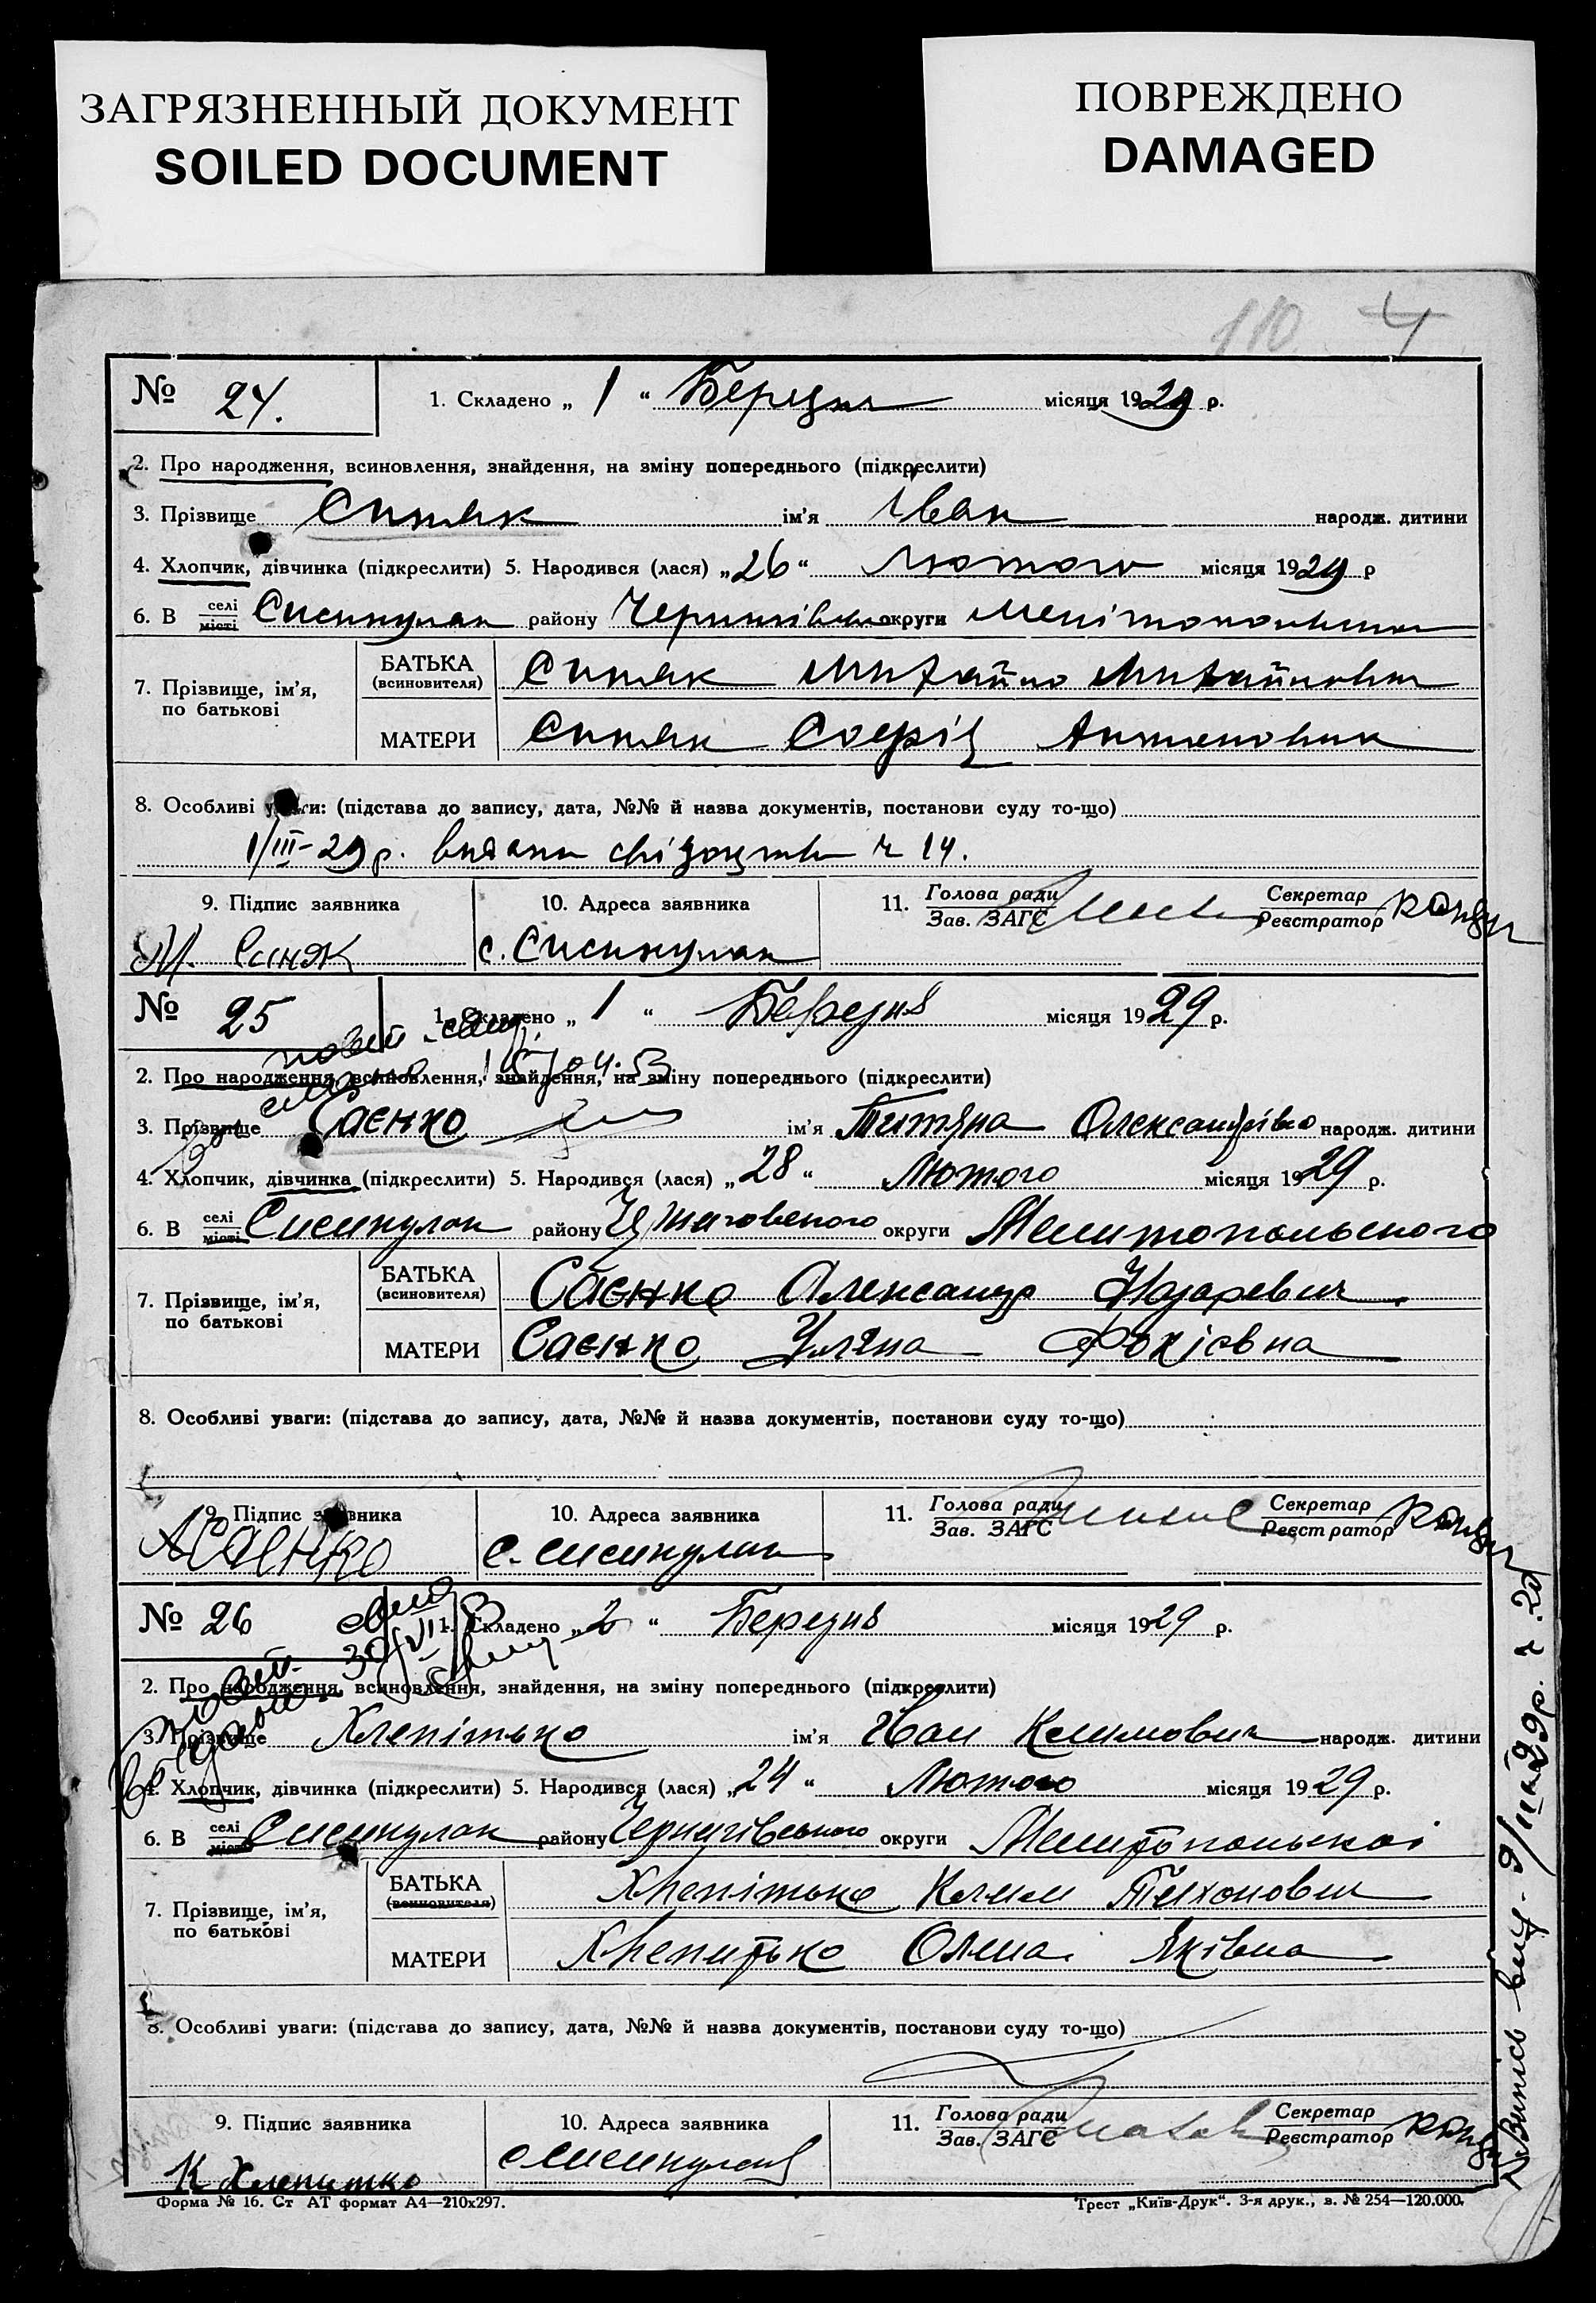 ЗАГРЯЗНЕННЫЙ ДОКУМЕНТ
SOILED DOCUMENT
ПОВРЕЖДЕНО
DAMAGED
110 4
№ 24. 1. Складено „ 1 “ Березня місяця 1929 р.
2. Про народження, всиновлення, знайдення, на зміну попереднього (підкреслити)
3. Прізвище Синяк ім'я Іван народж. дитини
4. Хлопчик, дівчинка (підкреслити) 5. Народився (лася) „26“ Лютого місяця 1929 р
6. В селі місті Сисикулак району округи
7. Прізвище, ім'я, по батькові
БАТЬКА (всиновителя) Синяк Михайло Михайлович
МАТЕРИ Синяк
8. Особливі уваги: (підстава до запису, дата, №№ й назва документів, постанови суду то-що)
1/III-29 р. 14.
9. Підпис заявника 10. Адреса заявника 11. Голова ради Зав. ЗАГС Секретар Реєстратор
М. Синяк с. Сисикулак
№ 25 1. Складено „ 1 “ Березня місяця 1929 р.
2. Про народження, всиновлення, знайдення, на зміну попереднього (підкреслити)
3. Прізвище Саєнко ім'я Титяна Олександрівна народж. дитини
4. Хлопчик, дівчинка (підкреслити) 5. Народився (лася) „28“ Лютого місяця 1929 р.
6. В селі місті Сисикулак району округи Мелитопольского
7. Прізвище, ім'я, по батькові
БАТЬКА (всиновителя) Саєнко Александр Назаревич
МАТЕРИ Саєнко Уляна Фокієвна
8. Особливі уваги: (підстава до запису, дата, №№ й назва документів, постанови суду то-що)
9. Підпис заявника 10. Адреса заявника 11. Голова ради Зав. ЗАГС Секретар Реєстратор
А Саєнко с. Сисикулак
№ 26 1. Складено „ 2 “ Березня місяця 1929 р.
2. Про народження, всиновлення, знайдення, на зміну попереднього (підкреслити)
3. Прізвище Хлепітько ім'я Іван Климович народж. дитини
4. Хлопчик, дівчинка (підкреслити) 5. Народився (лася) „24“ Лютого місяця 1929 р.
6. В селі місті Сисикулак району Чернигівського округи Мелитопольскоі
7. Прізвище, ім'я, по батькові
БАТЬКА (всиновителя) Хлепітько Клим Тихонович
МАТЕРИ Хлепитько Яківна
8. Особливі уваги: (підстава до запису, дата, №№ й назва документів, постанови суду то-що)
9. Підпис заявника 10. Адреса заявника 11. Голова ради Зав. ЗАГС Секретар Реєстратор
К Хлепитко
Форма № 16. Ст АТ формат А4—210х297. Трест „Київ-Друк“. 3-я друк., з. № 254—120.000.